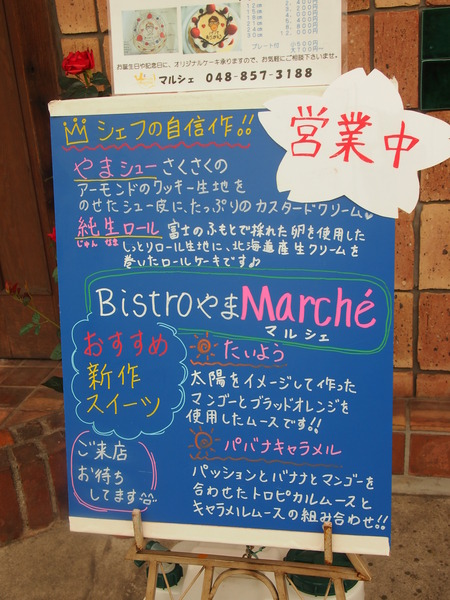 プレート付
お誕生日や記念日に、オリジナルケーキ承りますので、お気軽にご相談下さいませ。
マルシェ 048-857-3188
営業中
シェフの自信作!!
やまシュー さくさくの
アーモンドのクッキー生地を
のせたシュー皮に、たっぷりのカスタードクリーム♥
純生ロール 富士のふもとで採れた卵を使用した
じゅん なま
しっとりロール生地に、北海道産生クリームを
巻いたロールケーキです♪
Bistroやま Marché
マルシェ
おすすめ
新作
スイーツ
たいよう
太陽をイメージして作った
マンゴーとブラッドオレンジを
使用したムースです!!
ご来店
お待ち
してます
パバナキャラメル
パッションとバナナとマンゴーを
合わせたトロピカルムースと
キャラメルムースの組み合わせ!!